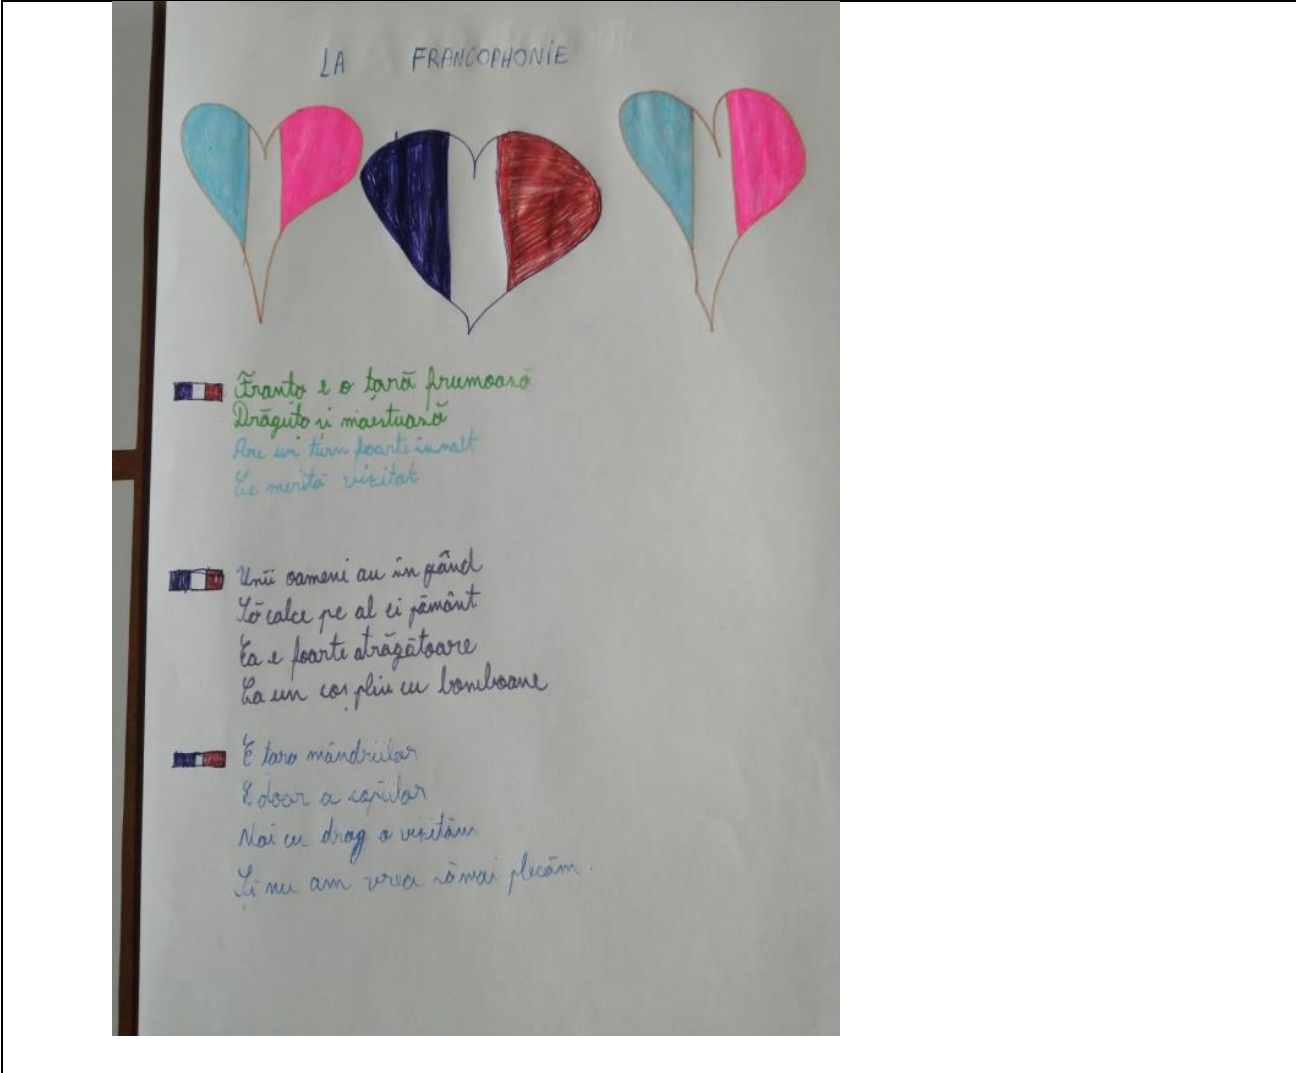 LA FRANCOPHONIE
Franta e o țară frumoasă
Drăguta și maestuasă
Are un turn foarte înnalt
Ce merită vizitat
Unii oameni au în gând
Să calce pe al ei pământ
Ea e foarte atrăgătoare
Ca un coș plin cu bomboane
E tara mândriilor
E doar a copiilor
Noi cu drag o vizităm
Și nu am vrea sămai plecăm.